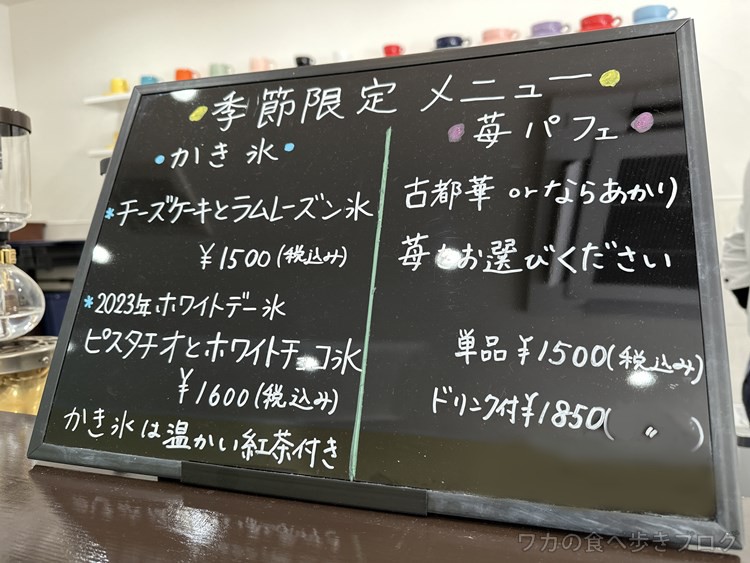 季節限定 メニュー
かき氷
*チーズケーキとラムレーズン氷
¥1500(税込み)
*2023年ホワイトデー氷
ピスタチオとホワイトチョコ氷
¥1600(税込み)
かき氷は温かい紅茶付き
苺パフェ
古都華 or ならあかり
苺をお選びください
単品¥1500(税込み)
ドリンク付¥1850( 〃 )
ワカの食べ歩きブログ